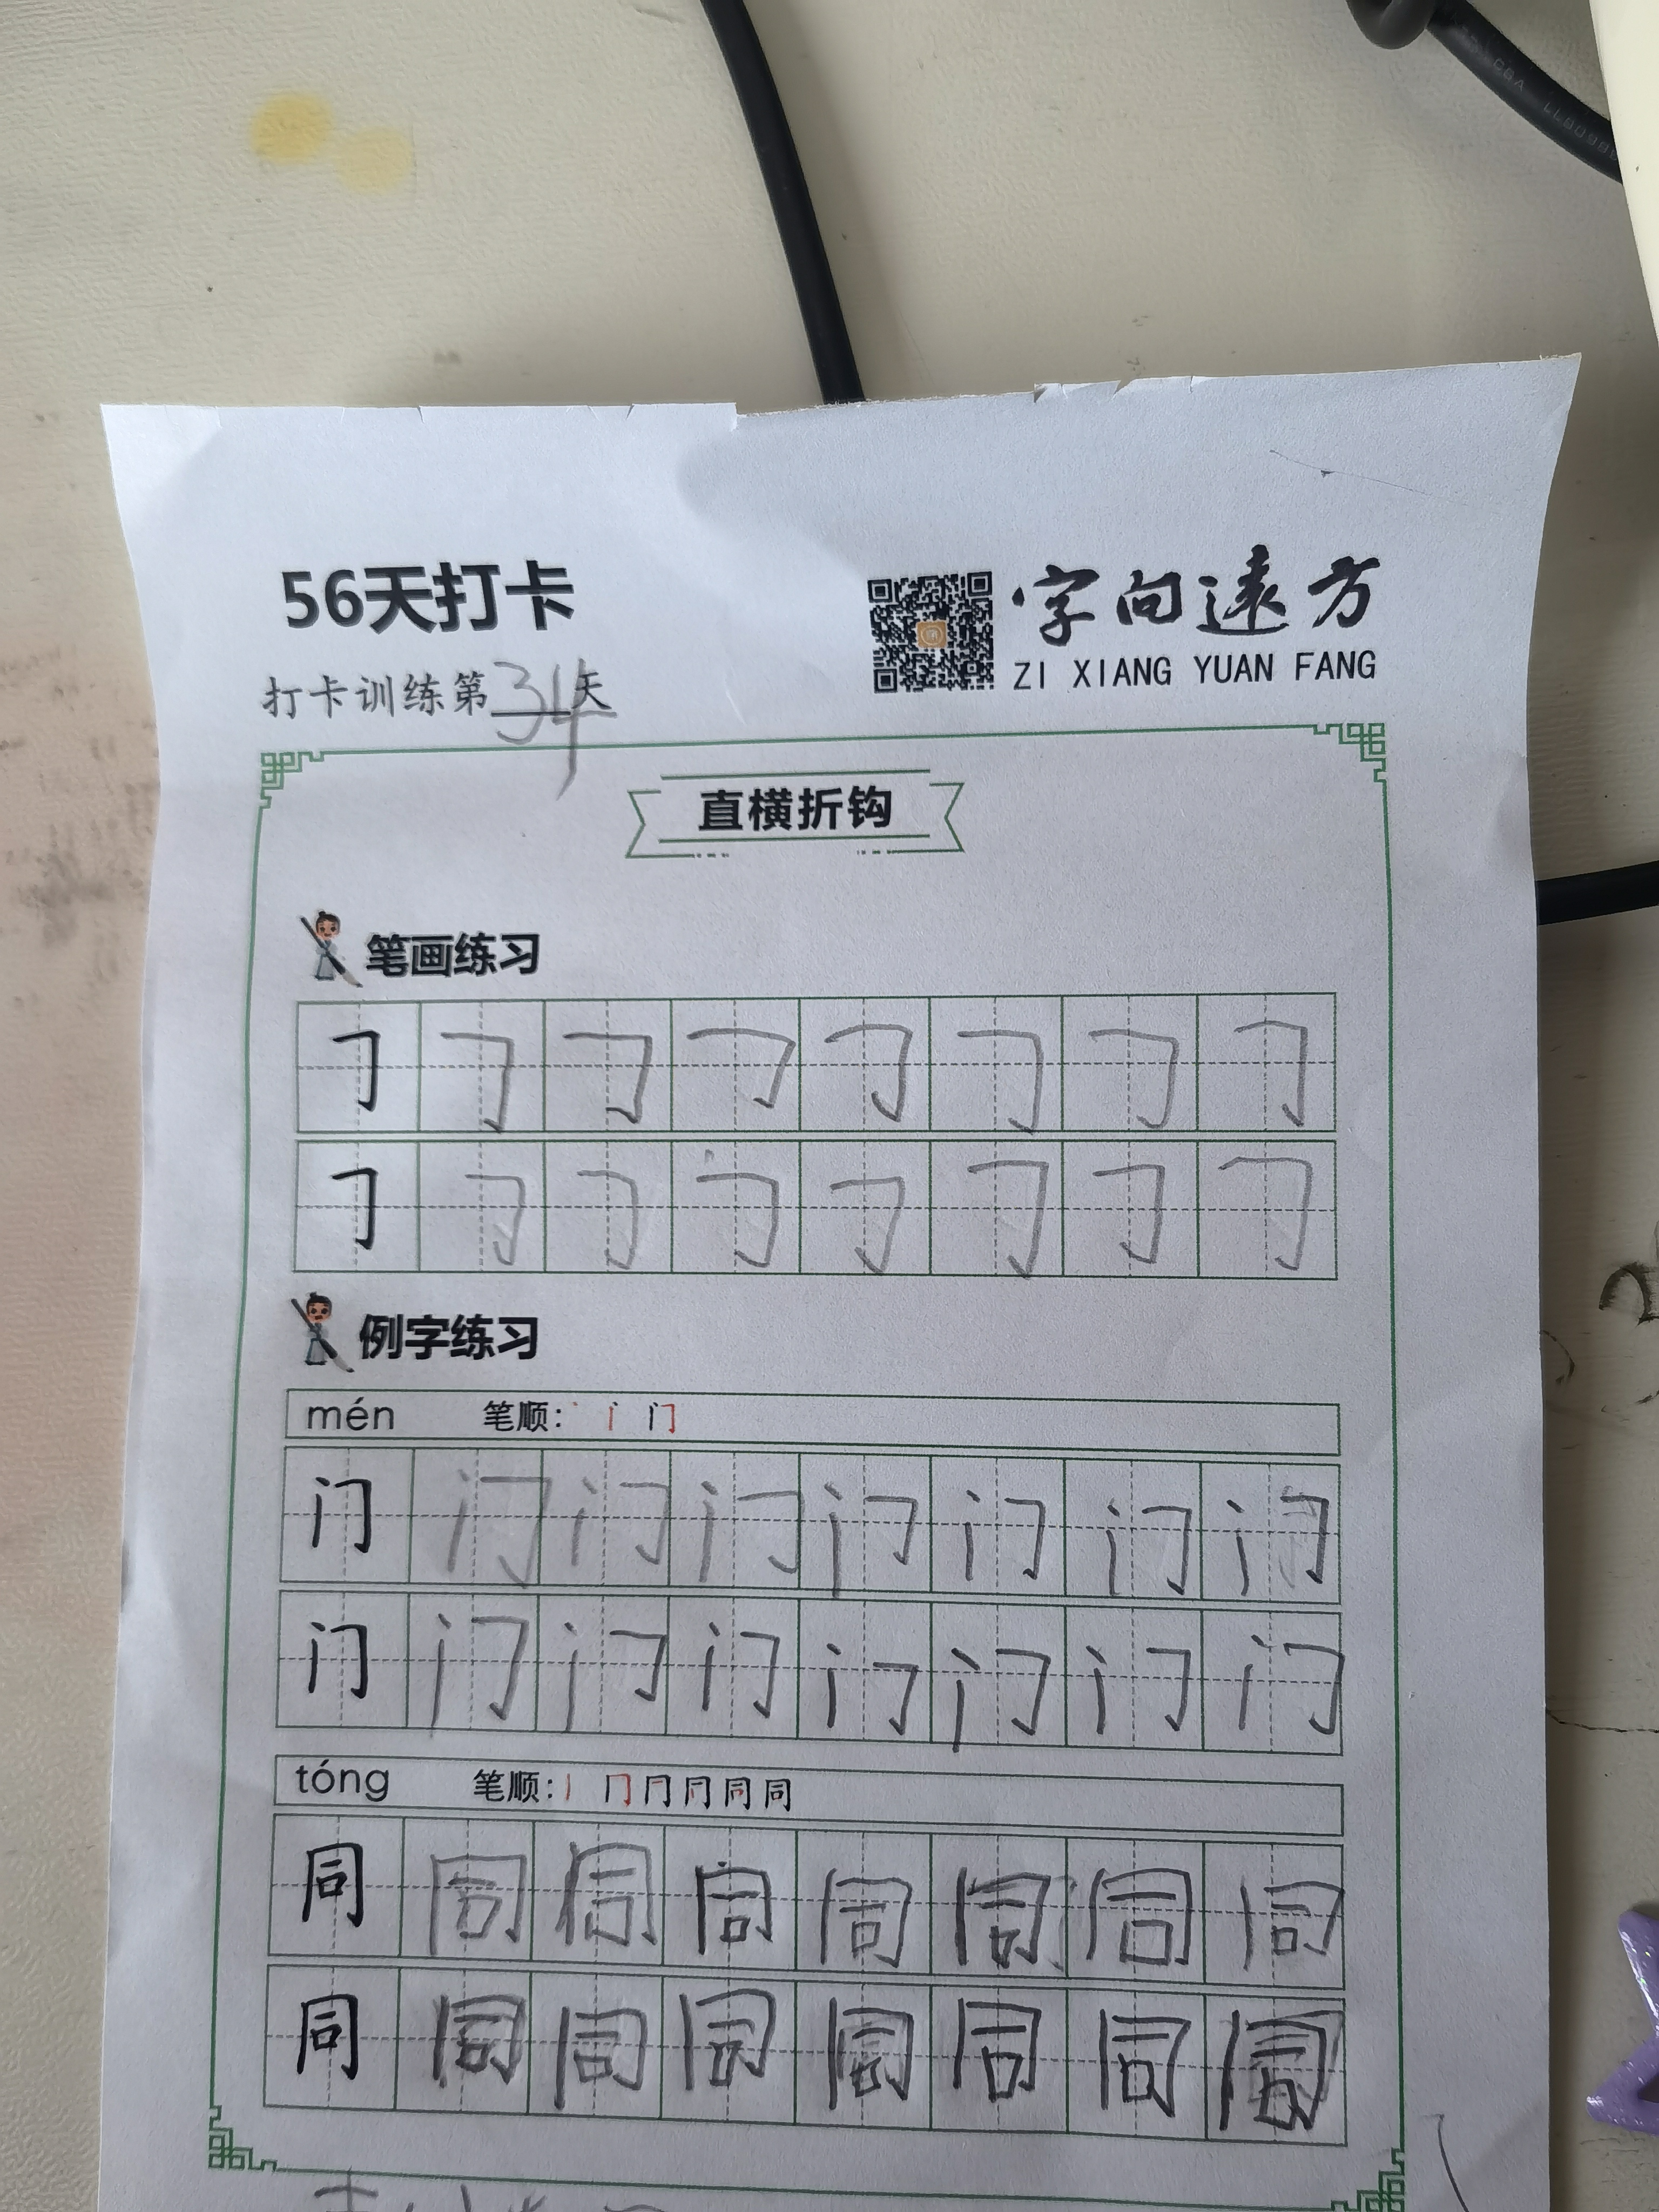 56天打卡
字向遠方
ZI XIANG YUAN FANG
打卡训练第34天
直横折钩
笔画练习
例字练习
mén 笔顺: 丶 门
门 门 门 门 门 门 门 门
门 门 门 门 门 门 门 门
tóng 笔顺: 丨 冂 同 同
同 同 同 同 同 同 同 同
同 同 同 同 同 同 同 同